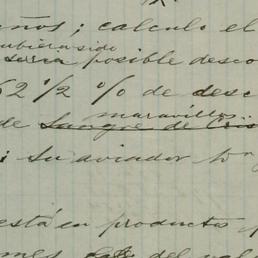 años; calculo el
hubiera sido
seria posible desco
62 1/2 % de desc
maravillos
de Sangre de Cris
; su aviador
está en productos